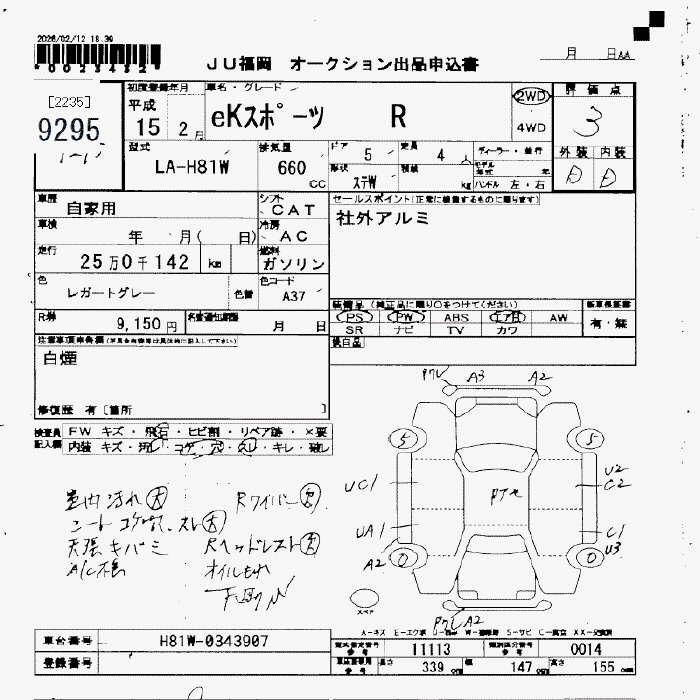 2026/02/12 18:39
*00234321*
JU福岡 オークション出品申込書
月 日 AA
[2235]
9295
初度登録年月
平成
15 2月
車名・グレード
eKスポーツ R
2WD
4WD
評価点
3
外装 内装
D D
型式
LA-H81W
排気量
660
CC
ドア 5
定員 4 人
形状 ステW
積載 kg
ディーラー・並行
モデル年式 年
ハンドル 左・右
車歴
自家用
シフト
CAT
セールスポイント
社外アルミ
車検
年 月( 日)
冷房
AC
走行
25万0千142 km
燃料
ガソリン
色
レガートグレー
色替
色コード
A37
R券
9,150円
月 日
装備品(純正品に限り○をつけてください)
PS PW ABS エアB AW
SR ナビ TV カワ
有・無
注意事項
白煙
修復歴 有[箇所 ]
検査員記入欄
FW キズ・飛石・ヒビ割・リペア跡・×要
内装 キズ・汚れ・コゲ・穴・スレ・キレ・破レ
室内汚れ 大
シート コゲ穴、スレ 大
天張キバミ
A/C不良
Rワイパー 欠
Rヘッドレスト 欠
オイルもれ
下廻サビ
A3 A2
5 5
UC1
UA1
A2
0 0
U2
C2
C1
U3
スペア
A2
車台番号
H81W-0343907
登録番号
11113
0014
長さ 339 cm
幅 147 cm
高さ 155 cm